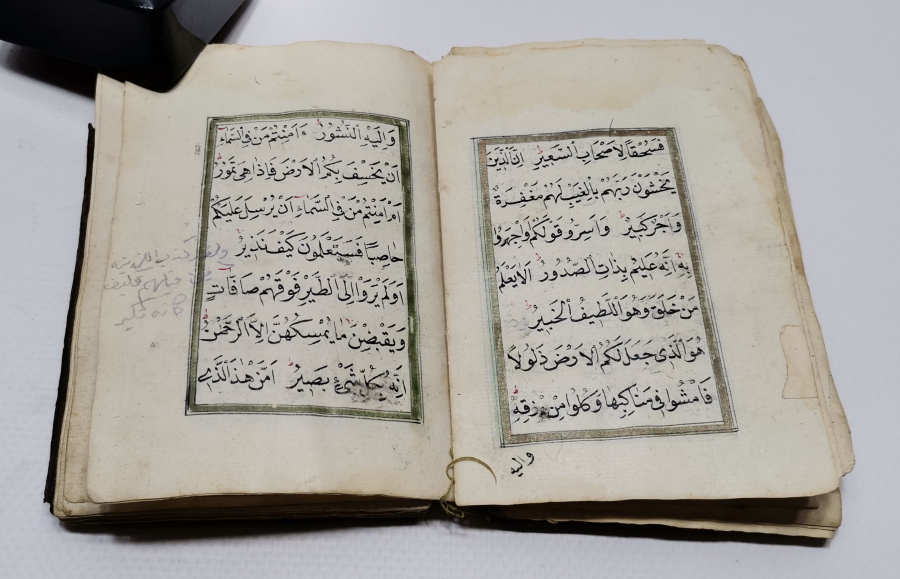 فَسُحْقًا لِاَصْحَابِ السَّعِيرِ اِنَّ الَّذِينَ
يَخْشَوْنَ رَبَّهُمْ بِالْغَيْبِ لَهُمْ مَغْفِرَةٌ
وَاَجْرٌ كَبِيرٌ وَاَسِرُّو قَوْلَكُمْ اَوِاجْهَرُوا
بِهِ اِنَّهُ عَلِيمٌ بِذَاتِ الصُّدُورِ اَلَا يَعْلَمُ
مَنْ خَلَقَ وَهُوَ اللَّطِيفُ الْخَبِيرُ
هُوَ الَّذِي جَعَلَ لَكُمُ الْاَرْضَ ذَلُولًا
فَامْشُوا فِي مَنَاكِبِهَا وَكُلُوا مِنْ رِزْقِهِ
واليه
وَاِلَيْهِ النُّشُورُ ءَاَمِنْتُمْ مَنْ فِي السَّمَاءِ
اَنْ يَخْسِفَ بِكُمُ الْاَرْضَ فَاِذَا هِيَ تَمُورُ
اَمْ اَمِنْتُمْ مَنْ فِي السَّمَاءِ اَنْ يُرْسِلَ عَلَيْكُمْ
حَاصِبًا فَسَتَعْلَمُونَ كَيْفَ نَذِيرِ
اَوَلَمْ يَرَوْا اِلَى الطَّيْرِ فَوْقَهُمْ صَافَّاتٍ
وَيَقْبِضْنَ مَا يُمْسِكُهُنَّ اِلَّا الرَّحْمٰنُ
اِنَّهُ بِكُلِّ شَيْءٍ بَصِيرٌ اَمَّنْ هٰذَا الَّذِي
ولقد كذب الذين
قبلهم فكيف
كان نكير